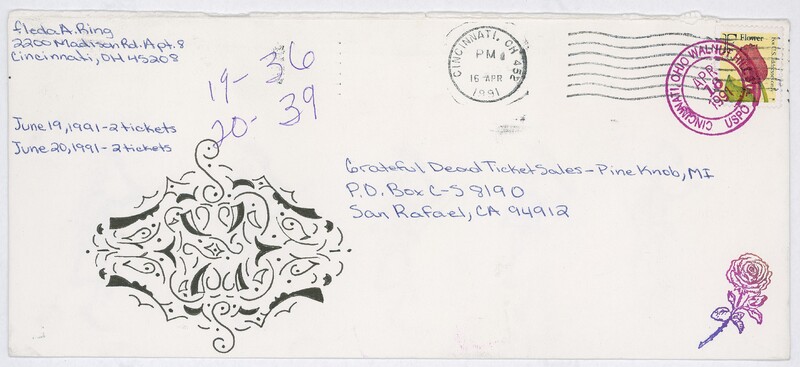 fleda A. Ring
2200 Madison Rd. Apt. 8
Cincinnati, OH 45208
19- 36
20- 39
June 19, 1991 - 2 tickets
June 20, 1991 - 2 tickets
CINCINNATI, OH 452
PM
16 APR
1991
F Flower
CINCINNATI, OHIO WALNUT HILLS STA.
APR
1991
USPO
Grateful Dead Ticket Sales - Pine Knob, MI
P.O. Box C-S 8190
San Rafael, CA 94912